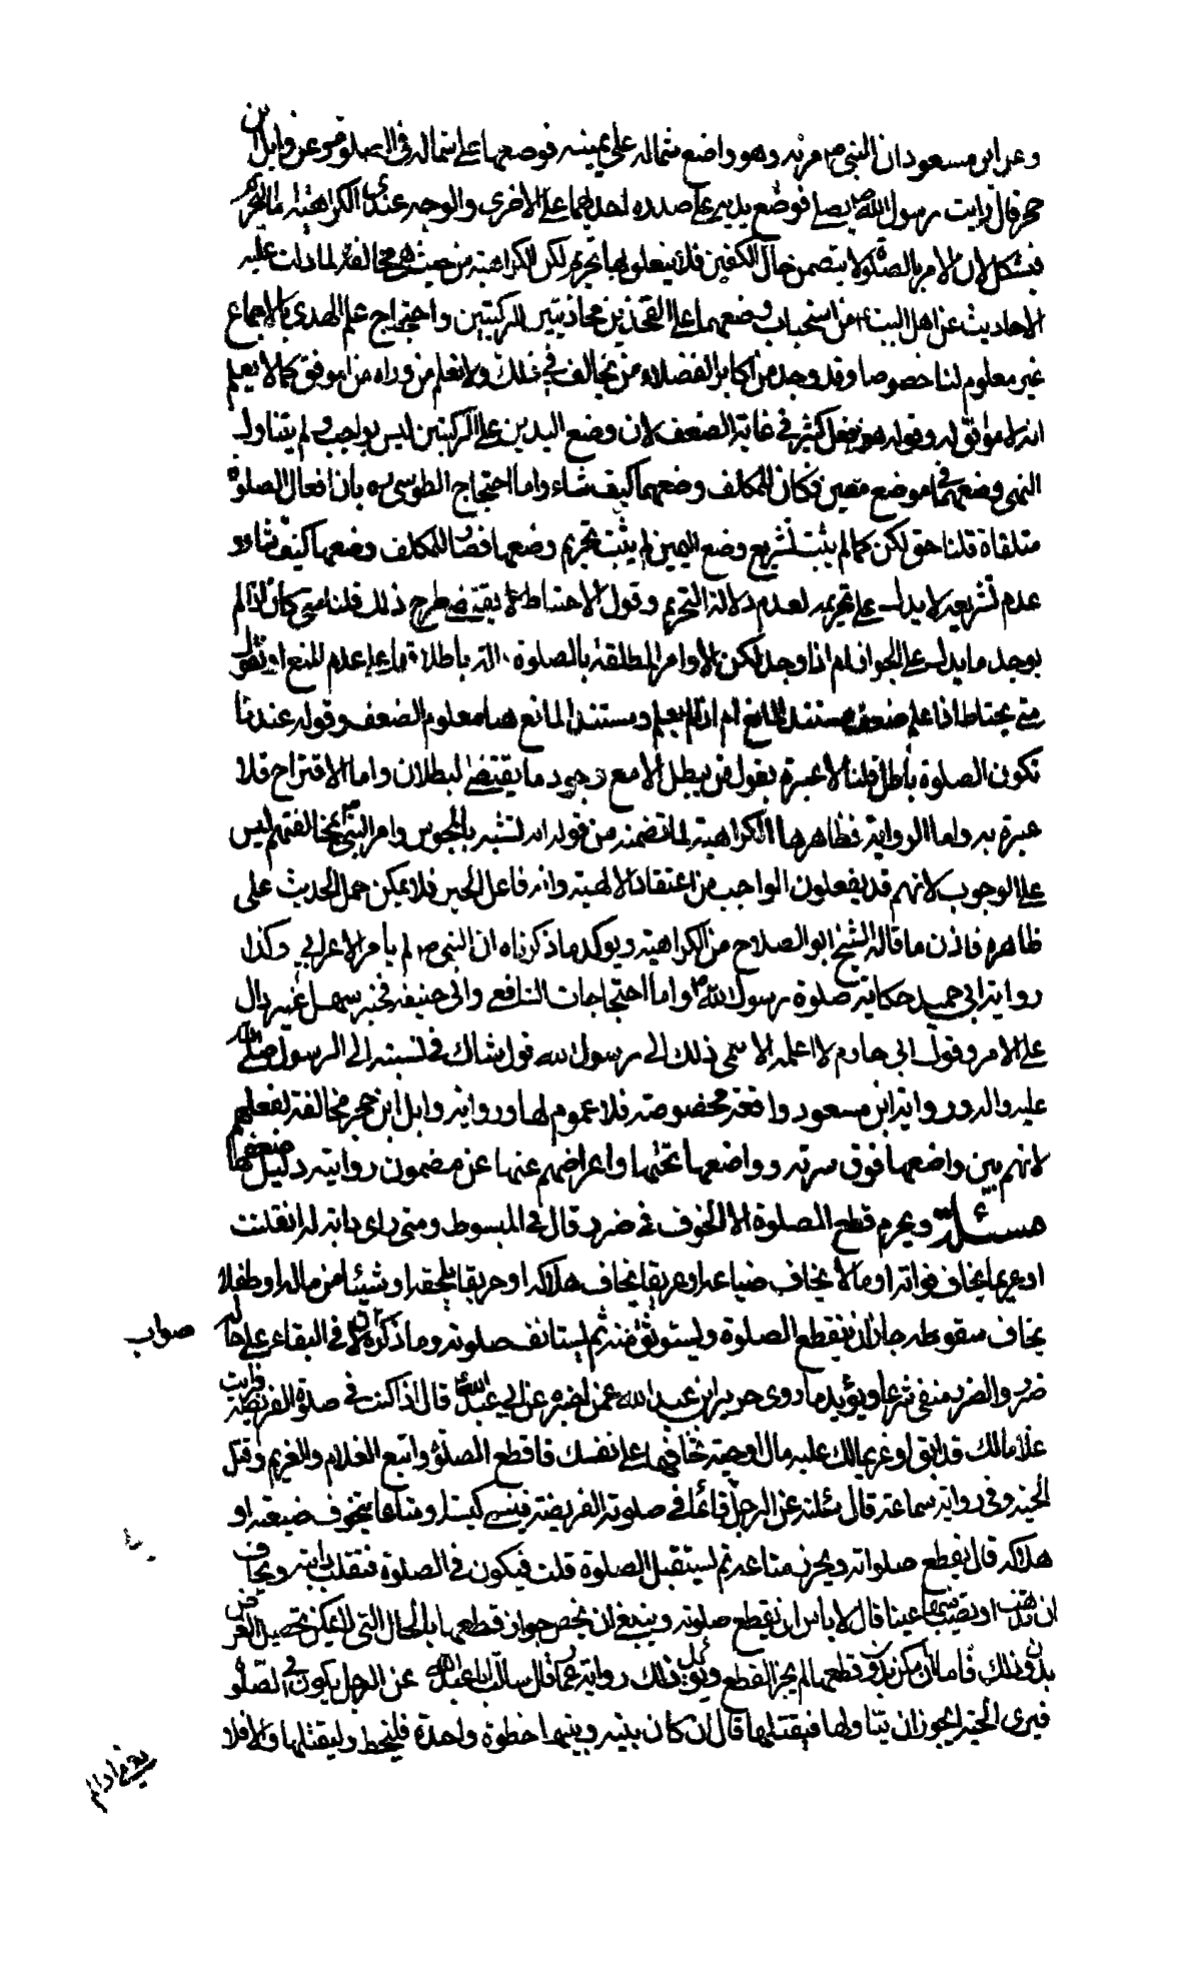 وعن ابن مسعود ان النبي ص مر به وهو واضع شماله على يمينه فوضعها على شماله في الصلوة وعن وابل بن
حجر قال رايت رسول الله ص يصلي فوضع يديه على صدره احديهما على الاخرى والوجه عندي الكراهية اما التحريم
فيشكل لان الامر بالصلوة لا يتضمن حال الكفين فلا يتعلق بها تحريم لكن الكراهية من حيث هي مخالفة لما دلت عليه
الاحاديث عن اهل البيت ع من استحباب وضعهما على الفخذين محاذيتين للركبتين واحتجاج علم الهدى بالاجماع
غير معلوم لنا خصوصا وقد وجد من اكابر الفضلاء من يخالف في ذلك ولا نعلم من وراه من الموفق كما لا يعلم
انه لا موافق له وقوله هو فعل كثير في غاية الضعف لان وضع اليدين على الركبتين ليس بواجب ولم يتناول
النهي وضعهما في موضع معين فكان للمكلف وضعهما كيف شاء واما احتجاج الطوسي ره بان افعال الصلوة
متلقاة قلنا حق لكن كما لم يثبت تشريع وضع اليمين لم يثبت تحريم وضعها فصار للمكلف وضعها كيف شاء و
عدم تشريعه لا يدل على تحريمه لعدم دلالة التحريم وقول الاحتياط يقتضي طرح ذلك قلنا متى كان اذا لم
يوجد ما يدل على الجواز ام اذا وجد لكن الاوامر المطلقة بالصلوة دالة باطلاقها على عدم المنع او نقول
متى يحتاط اذا علم ضعف مستند المانع ام اذا لم يعلم ومستند المانع هنا معلوم الضعف وقوله عندنا
تكون الصلوة باطلة قلنا لا عبرة بقول من يبطل الا مع وجود ما يقتضي البطلان واما الاقتراح فلا
عبرة به واما الرواية فظاهرها الكراهية لما تضمنه من قوله انه تشبه بالمجوس وامر النبي ص بمخالفتهم ليس
على الوجوب لانهم قد يفعلون الواجب من اعتقاد الالهية وانه فاعل الخير فلا يمكن حمل الحديث على
ظاهره فاذن ما قاله الشيخ ابو الصلاح من الكراهية ويوكد ما ذكرناه ان النبي ص لم يامر الاعرابي وكذا
رواية ابي حميد حكاية صلوة رسول الله ص واما احتجاجات الشافعي وابي حنيفة فخبر سهل غير دال
على الامر وقول ابي حازم لا اعلمه الا ينمي ذلك الى رسول الله قول شاك في نسبته الى الرسول صلى الله
عليه واله ورواية ابن مسعود واقعة مخصوصة فلا عموم لها ورواية وابل ابن حجر مخالفة لفعلهم
لانهم بين واضعها فوق سرته وواضعها تحتها واعراضهم عنها عن مضمون روايته دليل ضعفها
مسئلة ويحرم قطع الصلوة الا لخوف في ضرر قال في المبسوط ومتى راى دابة له انفلتت
او غريما يخاف فواته او مالا يخاف ضياعه او غريقا يخاف هلاكه او حريقا يلحقه او شيئا من ماله او طفلا
يخاف سقوطه جاز ان يقطع الصلوة ويستوثق منه ثم يستانف صلوته وما ذكره لان في البقاء على حاله
صواب
ضرر والضرر منفي شرعا ويؤيده ما روى حريز ابن عبد الله عمن اخبره عن ابي عبد الله ع قال اذا كنت في صلوة الفريضة فرايت
غلاما لك قد ابق او غريما لك عليه مال او حية تخافها على نفسك فاقطع الصلوة واتبع الغلام والغريم وقتل
الحية وفي رواية سماعة قال سئلته عن الرجل قائما في صلوة الفريضة فينسى كيسه او متاعا يتخوف ضيعته او
هلاكه قال يقطع صلواته ويحرز متاعه ثم يستقبل الصلوة قلت فيكون في الصلوة فتفلت دابته ويخاف
ان تذهب او يصيب منها عيبا قال لا باس ان يقطع صلوته وينبغي ان يخص جواز قطعها بالحال التي لا يمكن تحصيل الغرض
بدون ذلك فاما ان امكن بدون قطعها لم يجز القطع ويؤيد ذلك رواية عمار قال سالت ابا عبد الله عن الرجل يكون في الصلوة
فيرى الحية ايجوز ان يتناولها فيقتلها قال ان كان بينه وبينها خطوة واحدة فليخط وليقتلها والا فلا